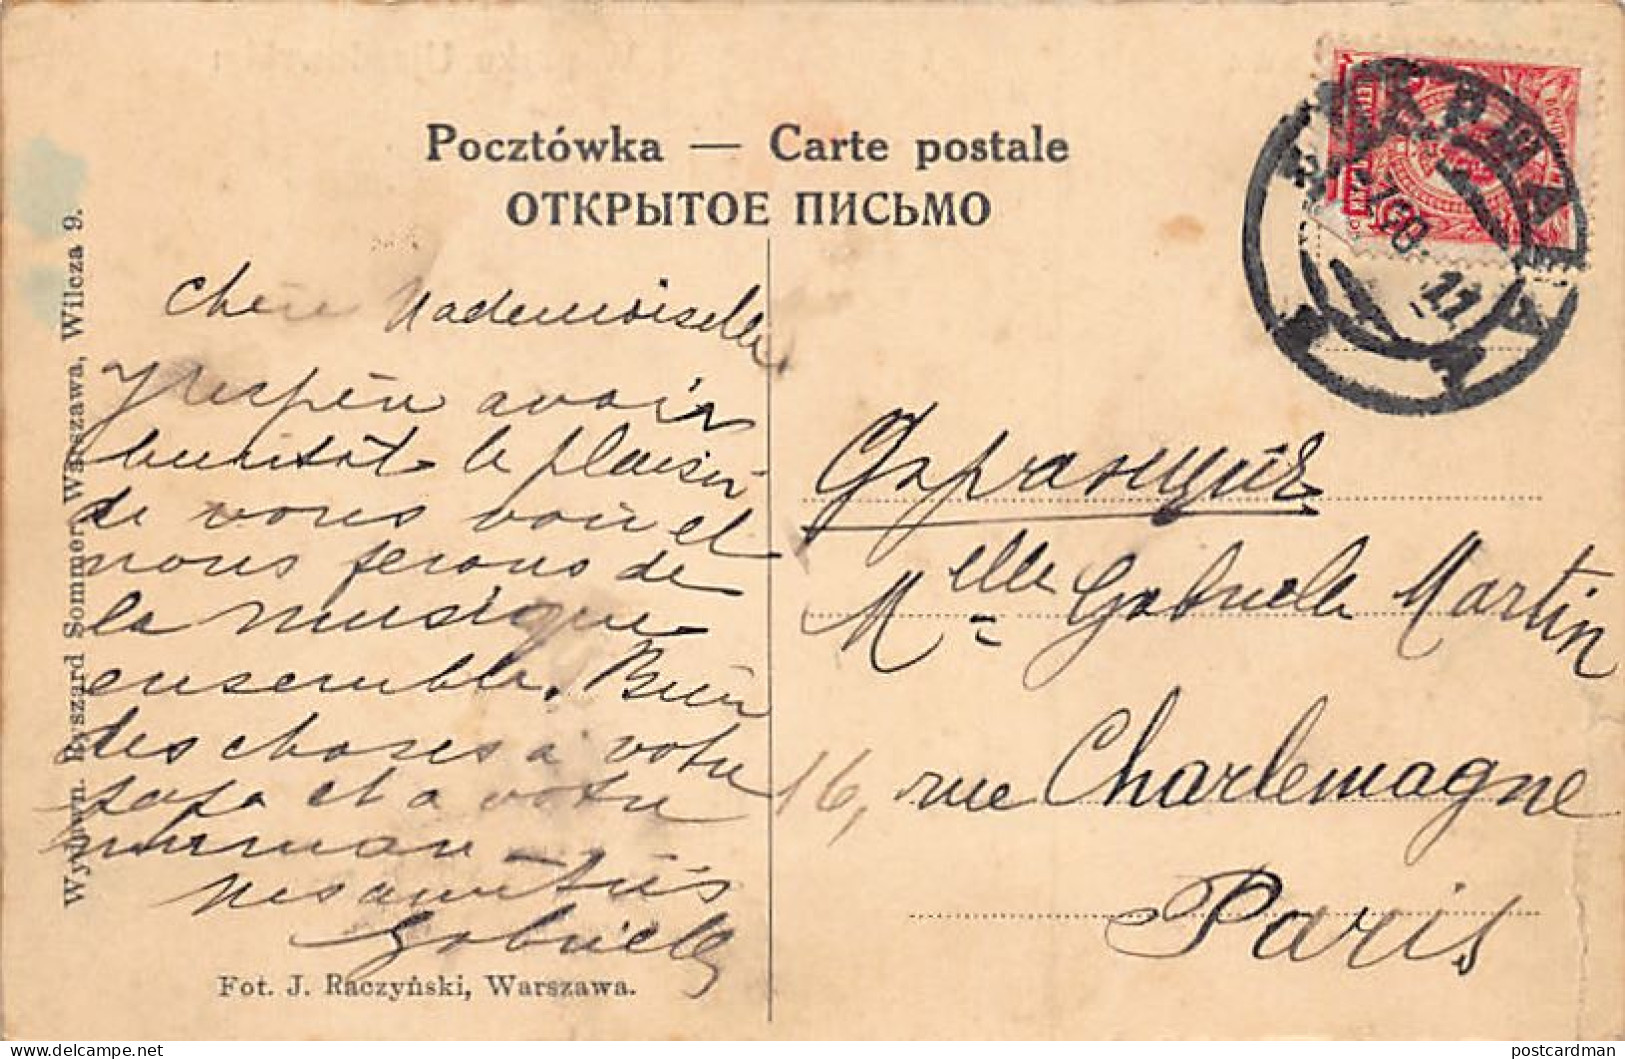 Pocztówka — Carte postale
ОТКРЫТОЕ ПИСЬМО
ВАРШАВА
11
Chère Mademoiselle
J'espère avoir
bientôt le plaisir
de vous voir et
nous ferons de
la musique
ensemble. Bien
des choses à votre
papa et a votre
maman
Mes amitiés
Gabrielle
Fot. J. Raczyński, Warszawa.
Wydawn. Ryszard Sommer, Warszawa, Wilcza 9.
Melle Gabrielle Martin
16, rue Charlemagne
Paris
postcardman